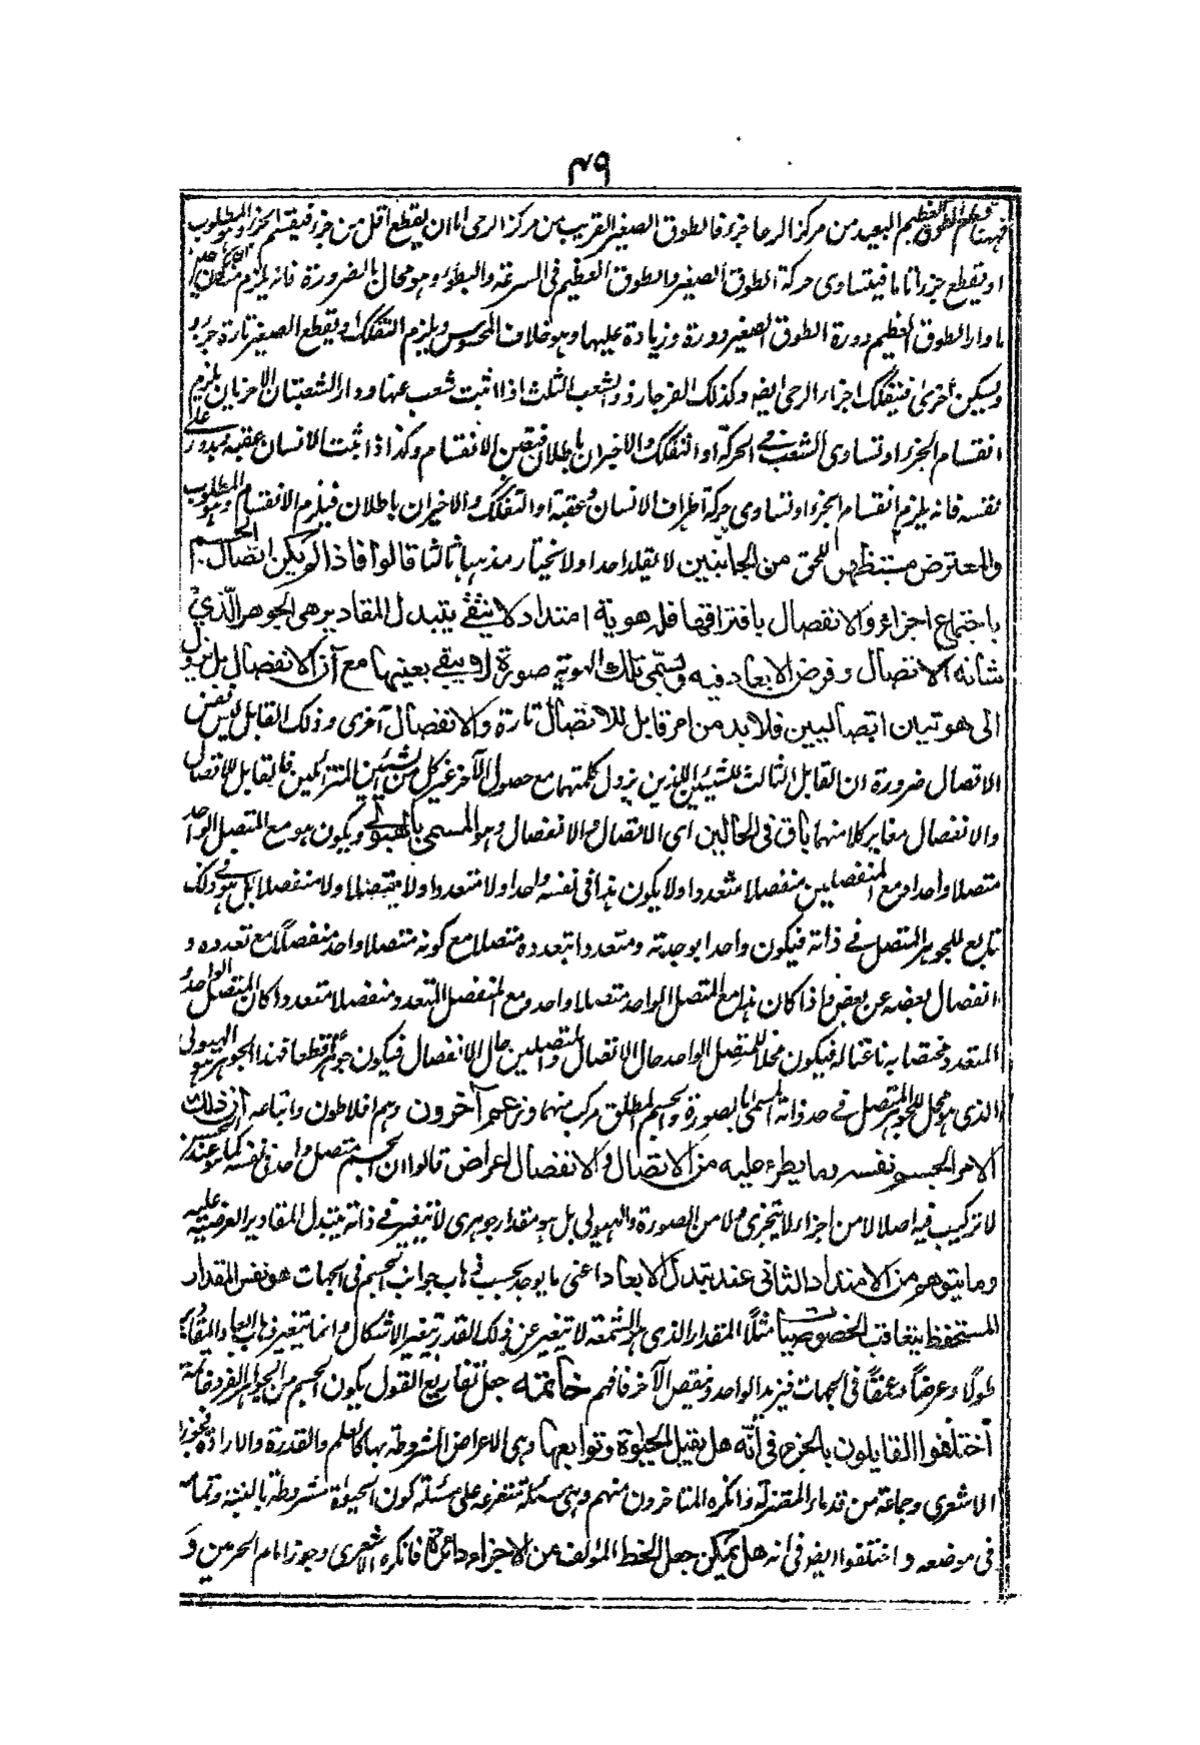 ٤٩
العظيم البعيد من مركز الرحا جزء فالطوق الصغير القريب من مركز الرحى اما ان يقطع اقل من جزء فيقسم الجزء وهو المطلوب
او يقطع جزءا تاما فيتساوى حركة الطوق الصغير والطوق العظيم فى السرعة والبطوء وهو محال بالضرورة فانه يلزم
ما دار الطوق العظيم دورة الطوق الصغير دورة وزيادة عليها وهو خلاف المحسوس ويلزم التفكك او يقطع الصغير تارة جزء و
يسكن اخرى فيتفكك اجزاء الرحى ايضه وكذلك الفرجار ذو الشعب الثلث اذا اثبت شعب عنها ودار الشعبتان الاخريان يلزم
انقسام الجزء او تساوى الشعب فى الحركة او التفكك والاخيران باطلان فيقين الانقسام وكذا اذا ثبت الانسان عقبه ويدور على
نفسه فانه يلزم انقسام الجزء او تساوى حركة اطراف الانسان وعقبه او التفكك والاخيران باطلان فيلزم الانقسام وهو المطلوب
والمعترض مستنظهر للحق من الجانبين لا يقلد احدا ولا يختار مذهبا ثالثا قالوا فاذا لم يكن اتصال الجسم
باجتماع اجزاء والانفصال بافتراقها فله هوية امتداد لا ينتفى بتبدل المقادير هى الجوهر الذى
شانه الاتصال وفرض الابعاد فيه وتسمى تلك الهوية صورة لا يبقى بعينها مع آن الانفصال بل يزول
الى هوتيين اتصاليين فلا بد من امر قابل للاتصال تارة والانفصال اخرى وذلك القابل ليس نفس
الاتصال ضرورة ان القابل الثالث للشيئين اللذين يزول كل منهما مع حصول الآخر غير كل من الشيئين المتزائلين فالقابل للاتصال
والانفصال مغاير كلا منهما باق فى الحالين اى الاتصال والانفصال وهو المسمى بالهيولى ويكون هو مع المتصل الواحد
متصلا واحدا ومع المنفصلين منفصلا متعددا ولا يكون هذا فى نفسه واحدا ولا متعددا ولا متصلا ولا منفصلا بل هو فى ذلك
تابع للجوهر المتصل فى ذاته فيكون واحدا بوحدته ومتعددا بتعدده متصلا مع كونه متصلا واحدا منفصلا مع تعدده و
انفصال بعضه عن بعض واذا كان هذا مع المتصل الواحد متصلا واحدا ومع المنفصل المتعدد منفصلا متعددا كان المتصل الواحد و
المتعدد مختصا به ناعتا له فيكون محلا للمتصل الواحد حال الاتصال والمتصلين حال الانفصال فيكون جوهرا قطعا فهذا الجوهر هو الهيولى
الذى هو محل للجوهر المتصل فى حد ذاته المسمى بالصورة والجسم المطلق مركب منهما وزعم آخرون وهم افلاطون واتباعه ان ذلك
الامر الجسم نفسه وما يطرء عليه من الاتصال والانفصال اعراض قالوا ان الجسم متصل واحد فى نفسه كما هو عند الحس
لا تركيب فيه اصلا لا من اجزاء لا يتجزى ولا من الصورة والهيولى بل هو مقدار جوهرى لا يتغير فى ذاته بتبدل المقادير العرضية عليه
وما يتوهم من الامتداد الثانى عند تبدل الابعاد اعنى ما يوجد بحسب ذهاب جوانب الجسم فى الجهات هو نفس المقدار
المستحفظ بتعاقب الخصوصيات مثلا المقدار الذى هو الشمعة لا تتغير عن ذلك القدر بتغير الاشكال وانما تتغير ذهاب
طولا وعرضا وعمقا فى الجهات فيزيد الواحد وينقص الآخر فافهم خاتمه جعل تفاريع القول بكون الجسم من الجواهر الفردة
اختلفوا القايلون بالجزء فى انه هل يقبل الحيوة وتوابعها وهى الاعراض المشروطة بها كالعلم والقدرة والارادة فجوزه
الاشعرى وجماعة من قدماء المعتزلة وانكره المتاخرون منهم وهى مسئلة متفرعة على مسئلة كون الحيوة مشروطة بالبنية
فى موضعه واختلفوا ايضه فى انه هل يمكن جعل الخط المؤلف من الاجزاء دائرة فانكره الاشعرى وجوزه امام الحرمين و